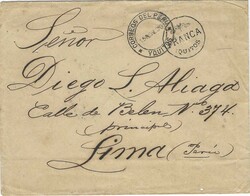 CORREOS DEL PERU
YQUITOS
FRANCA
IQUITOS
Señor
Diego S. Aliaga
Calle de Belen Nº 374
principal
Lima (Perú)